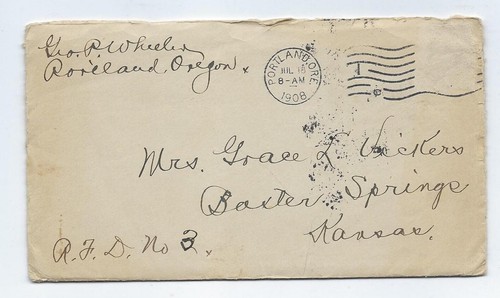 Geo. P. Wheeler
Portland, Oregon.
PORTLAND, ORE.
JUL 16
8-AM
1908
1
Mrs. Grace L Vickers
Baxter Springs
Kansas.
R.F.D. No 3.